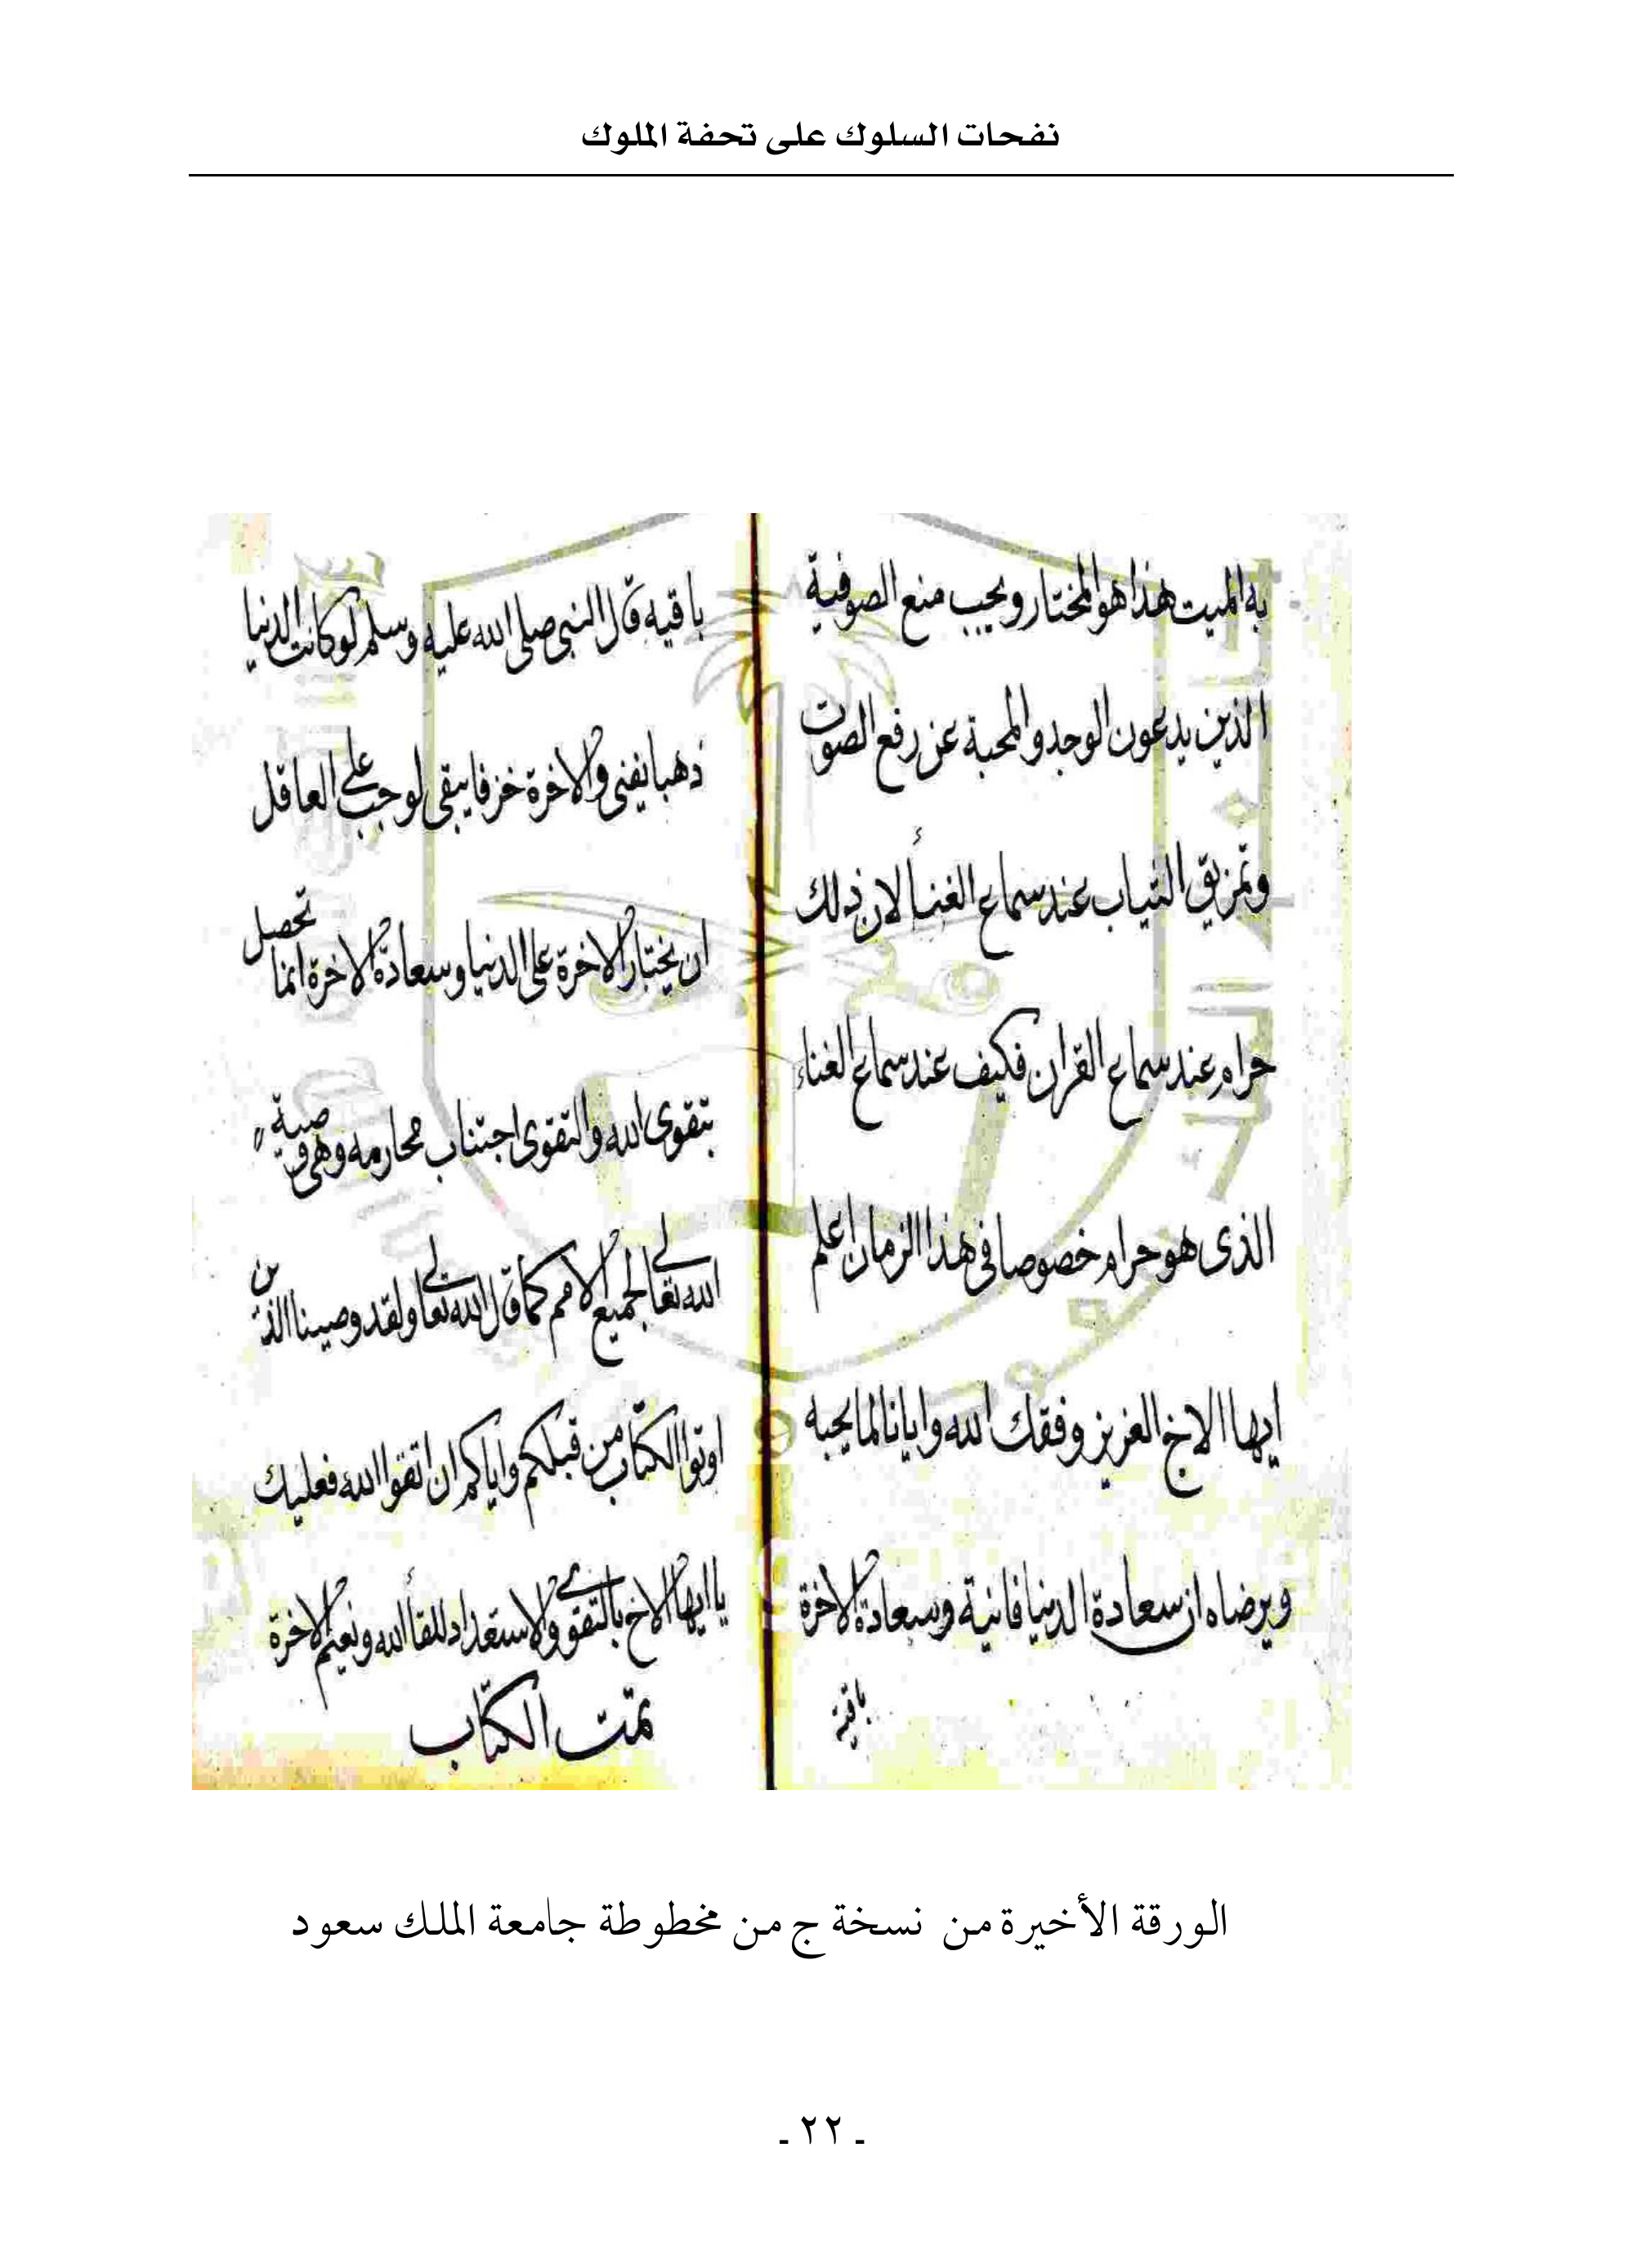 نفحات السلوك على تحفة الملوك
به الميت هذا هو المختار ويجب منع الصوفية
الذين يدعون الوجد والمحبة عن رفع الصوت
وتمزيق الثياب عند سماع الغنأ لان ذلك
حرام عند سماع القران فكيف عند سماع الغناء
الذى هو حرام خصوصا فى هذا الزمان اعلم
ايها الاخ العزيز وفقك الله وايانا لما يحبه
ويرضاه ان سعادة الدنيا فانية وسعادة الاخرة
باقية
باقيه قال النبى صلى الله عليه وسلم لو كانت الدنيا
ذهبا يفنى والاخرة خزفا يبقى لوجب على العاقل
ان يختار الاخرة على الدنيا وسعادة الاخرة انما تحصل
بتقوى الله والتقوى اجتناب محارمه وهى وصية
الله تعالى لجميع الامم كما قال الله تعالى ولقد وصينا الذين
اوتوا الكتاب من قبلكم واياكم ان اتقوا الله فعليك
يا ايها الاخ بالتقوى والاستعداد للقأ الله ونعيم الاخرة
تمت الكتاب
الورقة الأخيرة من نسخة ج من مخطوطة جامعة الملك سعود
ـ ٢٢ ـ